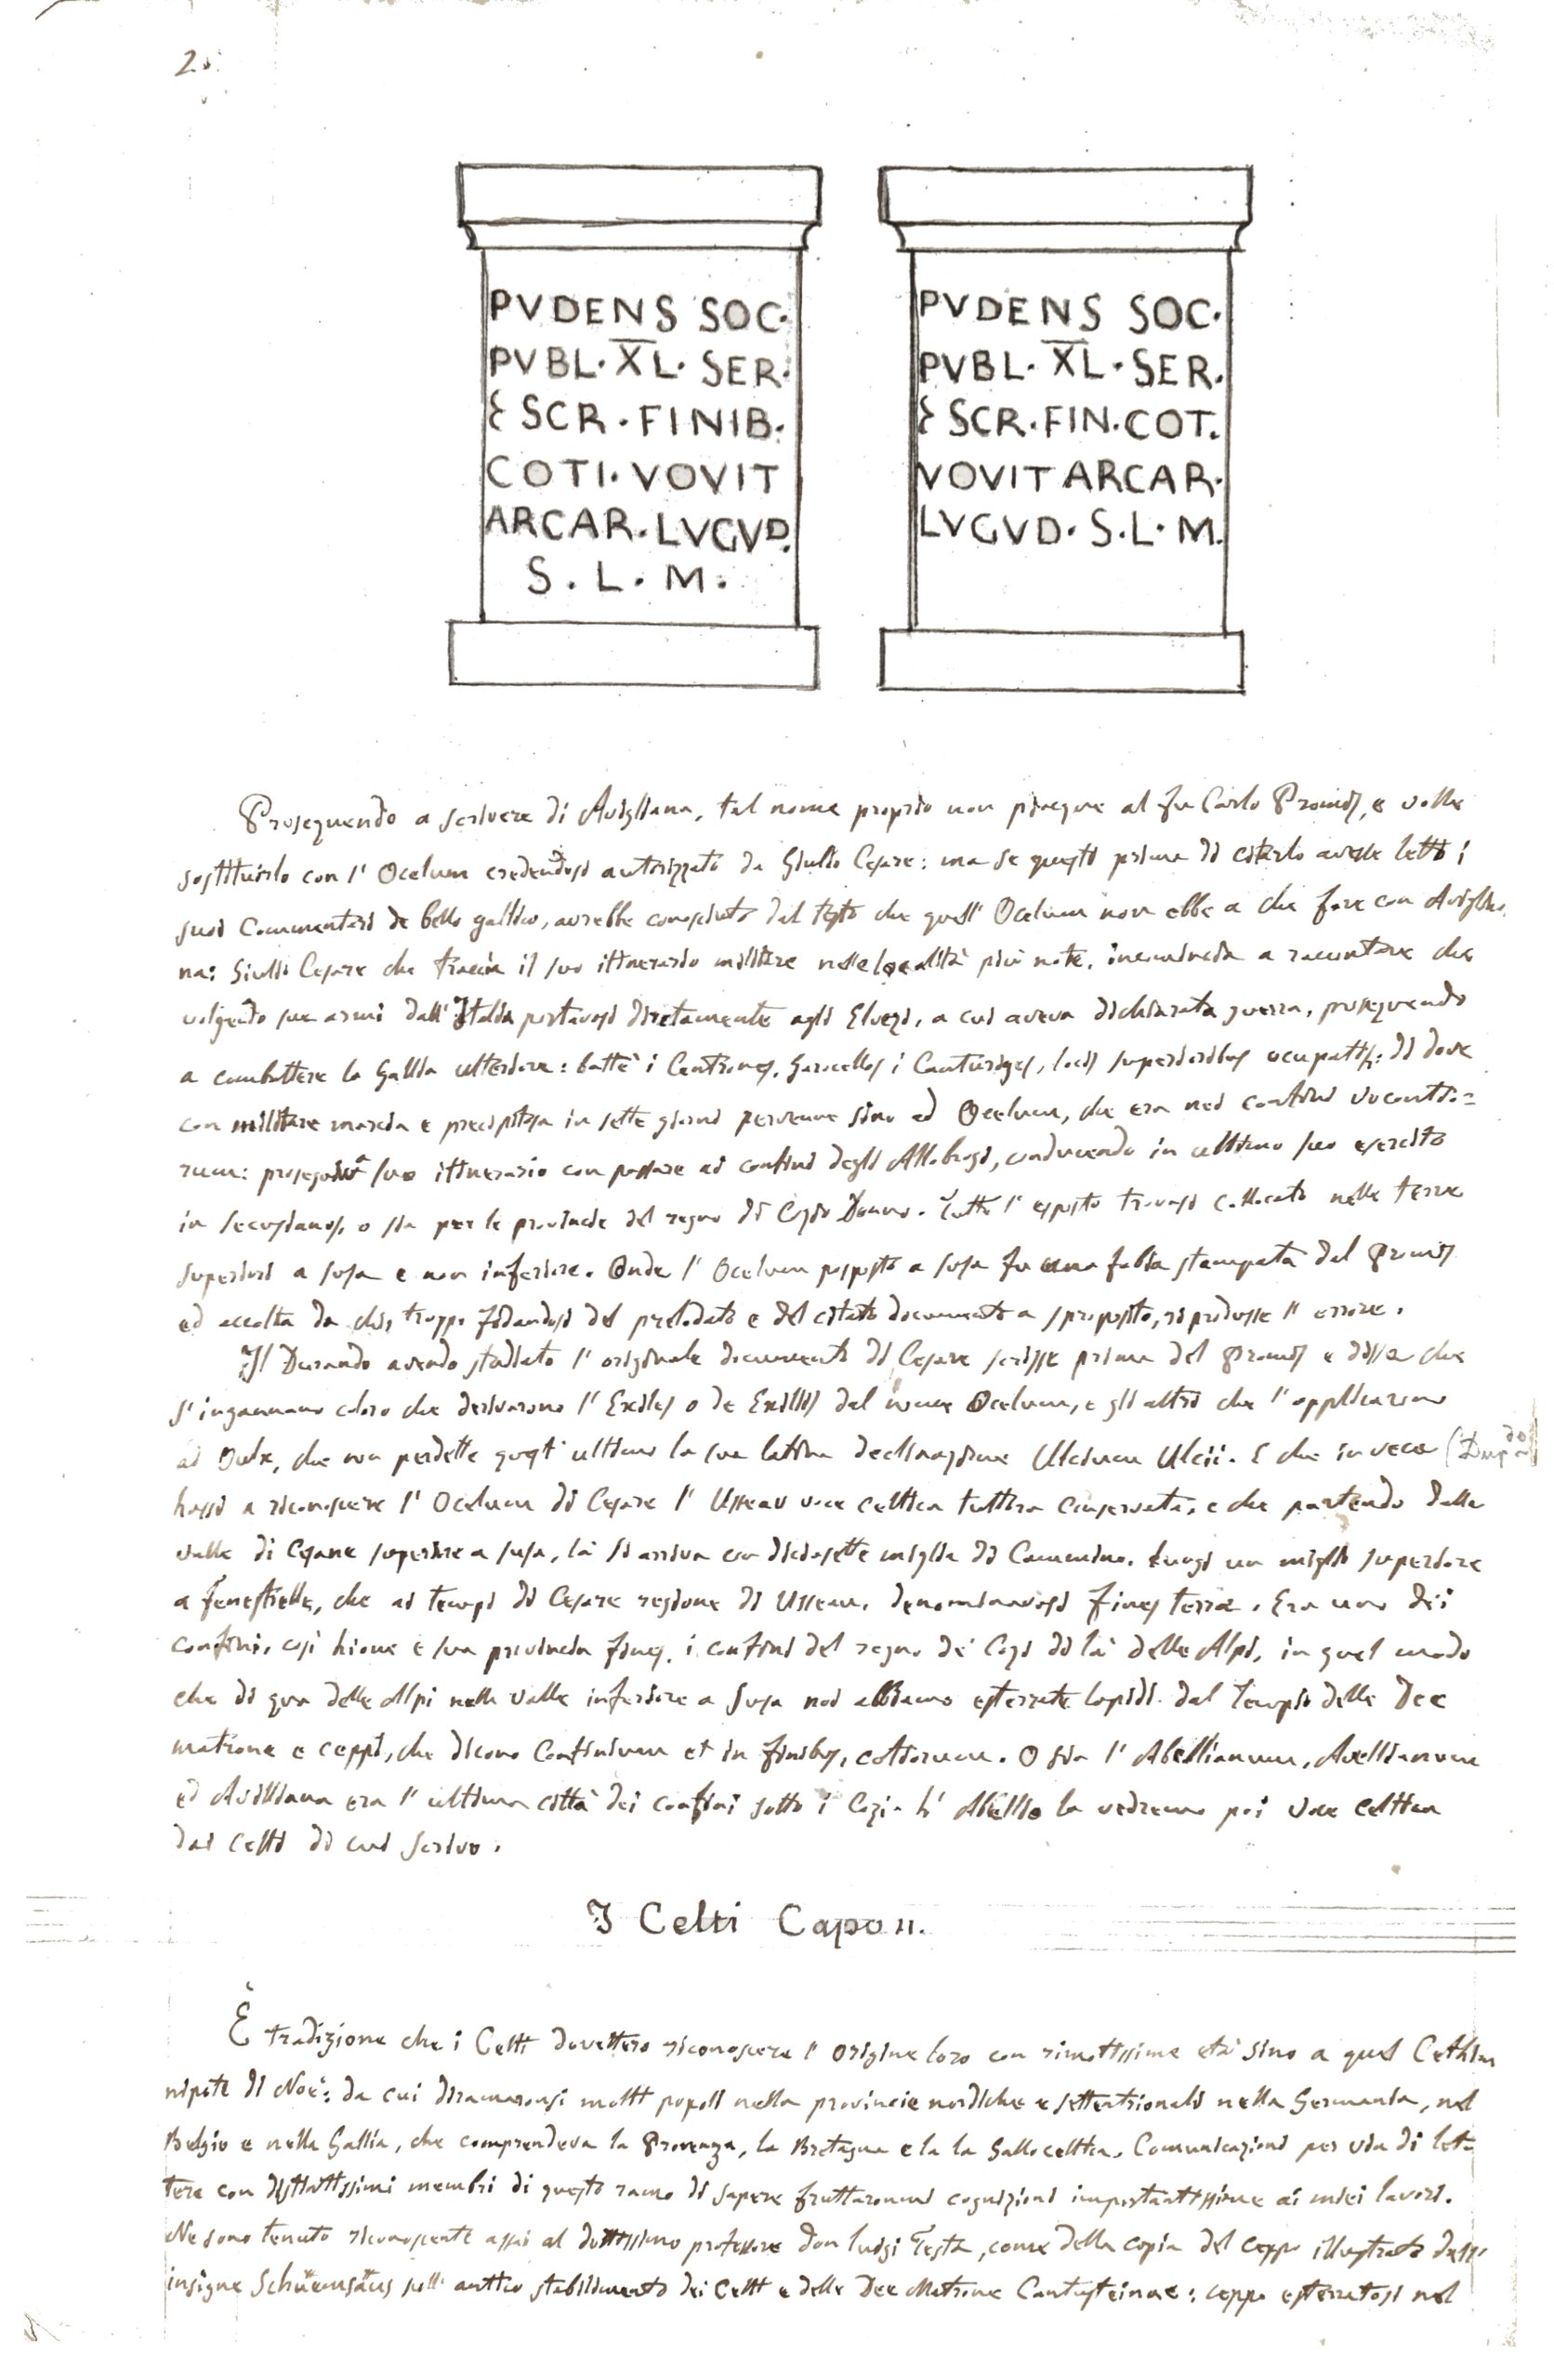 PVDENS SOC·
PVBL·X̅L·SER·
Ɛ SCR·FINIB·
COTI·VOVIT
ARCAR·LVGVD.
S.L.M.
PVDENS SOC·
PVBL·X̅L·SER.
Ɛ SCR·FIN·COT.
VOVIT ARCAR·
LVGVD·S.L·M.
Proseguendo a scrivere di Avigliana, tal nome proprio non piacque al fu Carlo Promis, e volle
sostituirlo con l' Ocelum credendosi autorizzato da Giulio Cesare: ma se questi prima di citarlo avesse letto i
suoi Commentari de bello gallico, avrebbe conosciuto dal testo che quell' Ocelum non ebbe a che fare con Aviglia
na: Giulio Cesare che traccia il suo itinerario militare nelle località più note, incomincia a raccontare che
volgendo sue armi dall' Italia portavasi direttamente agli Elvezi, a cui aveva dichiarata guerra, proseguendo
a combattere la Gallia ulteriore: battè i Centrones, Garocellos i Canturiges, locis superioribus occupatis: di dove
con militare marcia e precipitosa in sette giorni pervenne sino ad Ocelum, che era nei confini vocontio=
rum: suo itinerario con passare ai confini degli Allobrogi, conducendo in ultimo suo esercito
in secusianos, o sia per le provincie del regno di Cozio Donno. Tutto l' esposto trovasi collocato nelle terre
superiori a susa e non inferiore. Onde l' Ocelum posposto a susa fu una fabia stampata dal Promis
ed accolta da chi, troppo fidandosi del prelodato e del citato documento a sproposito, riprodusse l' errore.
Il Durando avendo studiato l' originale documento di Cesare scrisse prima del Promis e disse che
s' ingannano coloro che derivarono l' Exiles o de Exillis dal nome Ocelum, e gli altri che l' applicarono
ad Oulx, che non perdette quest' ultimo la sua latina declinazione Ulcium Ulcii. E che invece
hassi a riconoscere l' Ocelum di Cesare l' Usseau voce celtica tuttora conservata, e che partendo dalla
valle di Cesane superiore a susa, là si arriva con diciasette miglia di Cammino. lungi un miglio superiore
a Fenestrelle, che ai tempi di Cesare regione di Usseau, denominavasi fines terræ. Era uno dei
confini, così hione e sua provincia fines, i confini del regno de' Cozi di là delle Alpi, in quel modo
che di qua delle Alpi nella valle inferiore a Susa noi abbiamo esterrate lapidi dal tempio delle Dee
matrone e ceppi, che dicono Confinium et in finibus, cotiorum. O sia l' Abellianum, Avellianum
ed Avilliana era l' ultima città dei confini sotto i Cozi. L' Abellio la vedremo poi voce celtica
dai Celti di cui scrivo.
I Celti Capo II.
È tradizione che i Celti dovettero riconoscere l' origine loro con rimotissima età sino a quel Cethim
nipote di Noè: da cui diramaronsi molti popoli nella provincie nordiche e settentrionali nella Germania, nel
Belgio e nella Gallia, che comprendeva la Provenza, la Bretagna e la la Galloceltica. Comunicazioni per via di let=
tere con distintissimi membri di questo ramo di sapere fruttaronmi cognizioni importantissime ai miei lavori.
Ne sono tenuto riconoscente assai al dottissimo professore don luigi Testa, come della copia del ceppo illustrato dall'
insigne sull' antico stabilimento dei Celti e delle Dee Matrone Cantusteinae: ceppo esterratosi nel